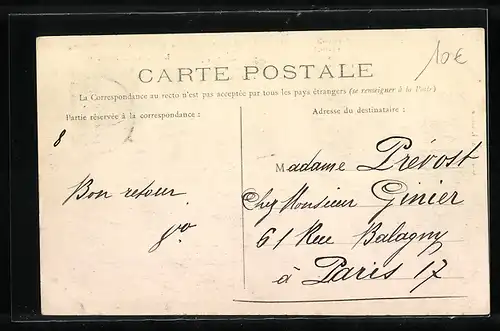 10€
CARTE POSTALE
La Correspondance au recto n'est pas acceptée par tous les pays étrangers (se renseigner à la Poste)
Partie réservée à la correspondance :
Adresse du destinataire :
8
Madame Prévost
Bon retour
Chez Monsieur Ginier
61 Rue Balagny
à Paris 17